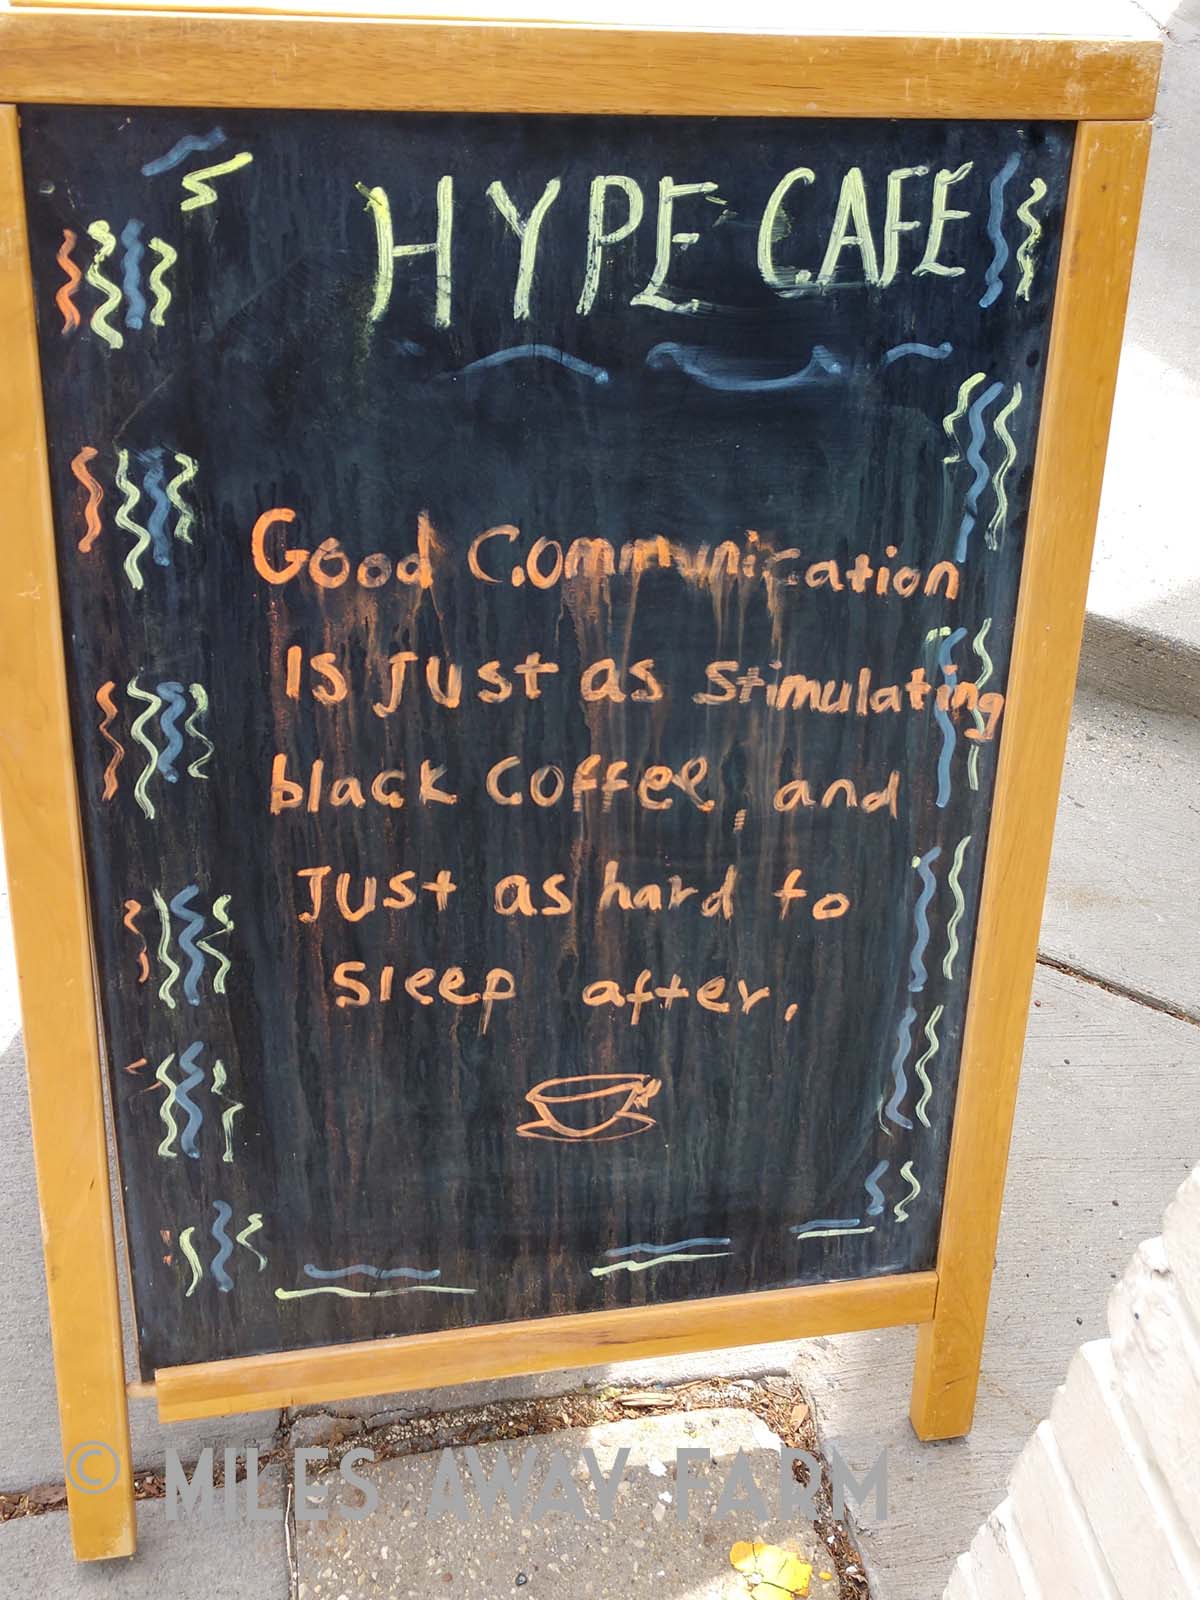 HYPE CAFE
Good Communication
Is Just as Stimulating
black Coffee, and
Just as hard to
Sleep after.
© MILES AWAY FARM